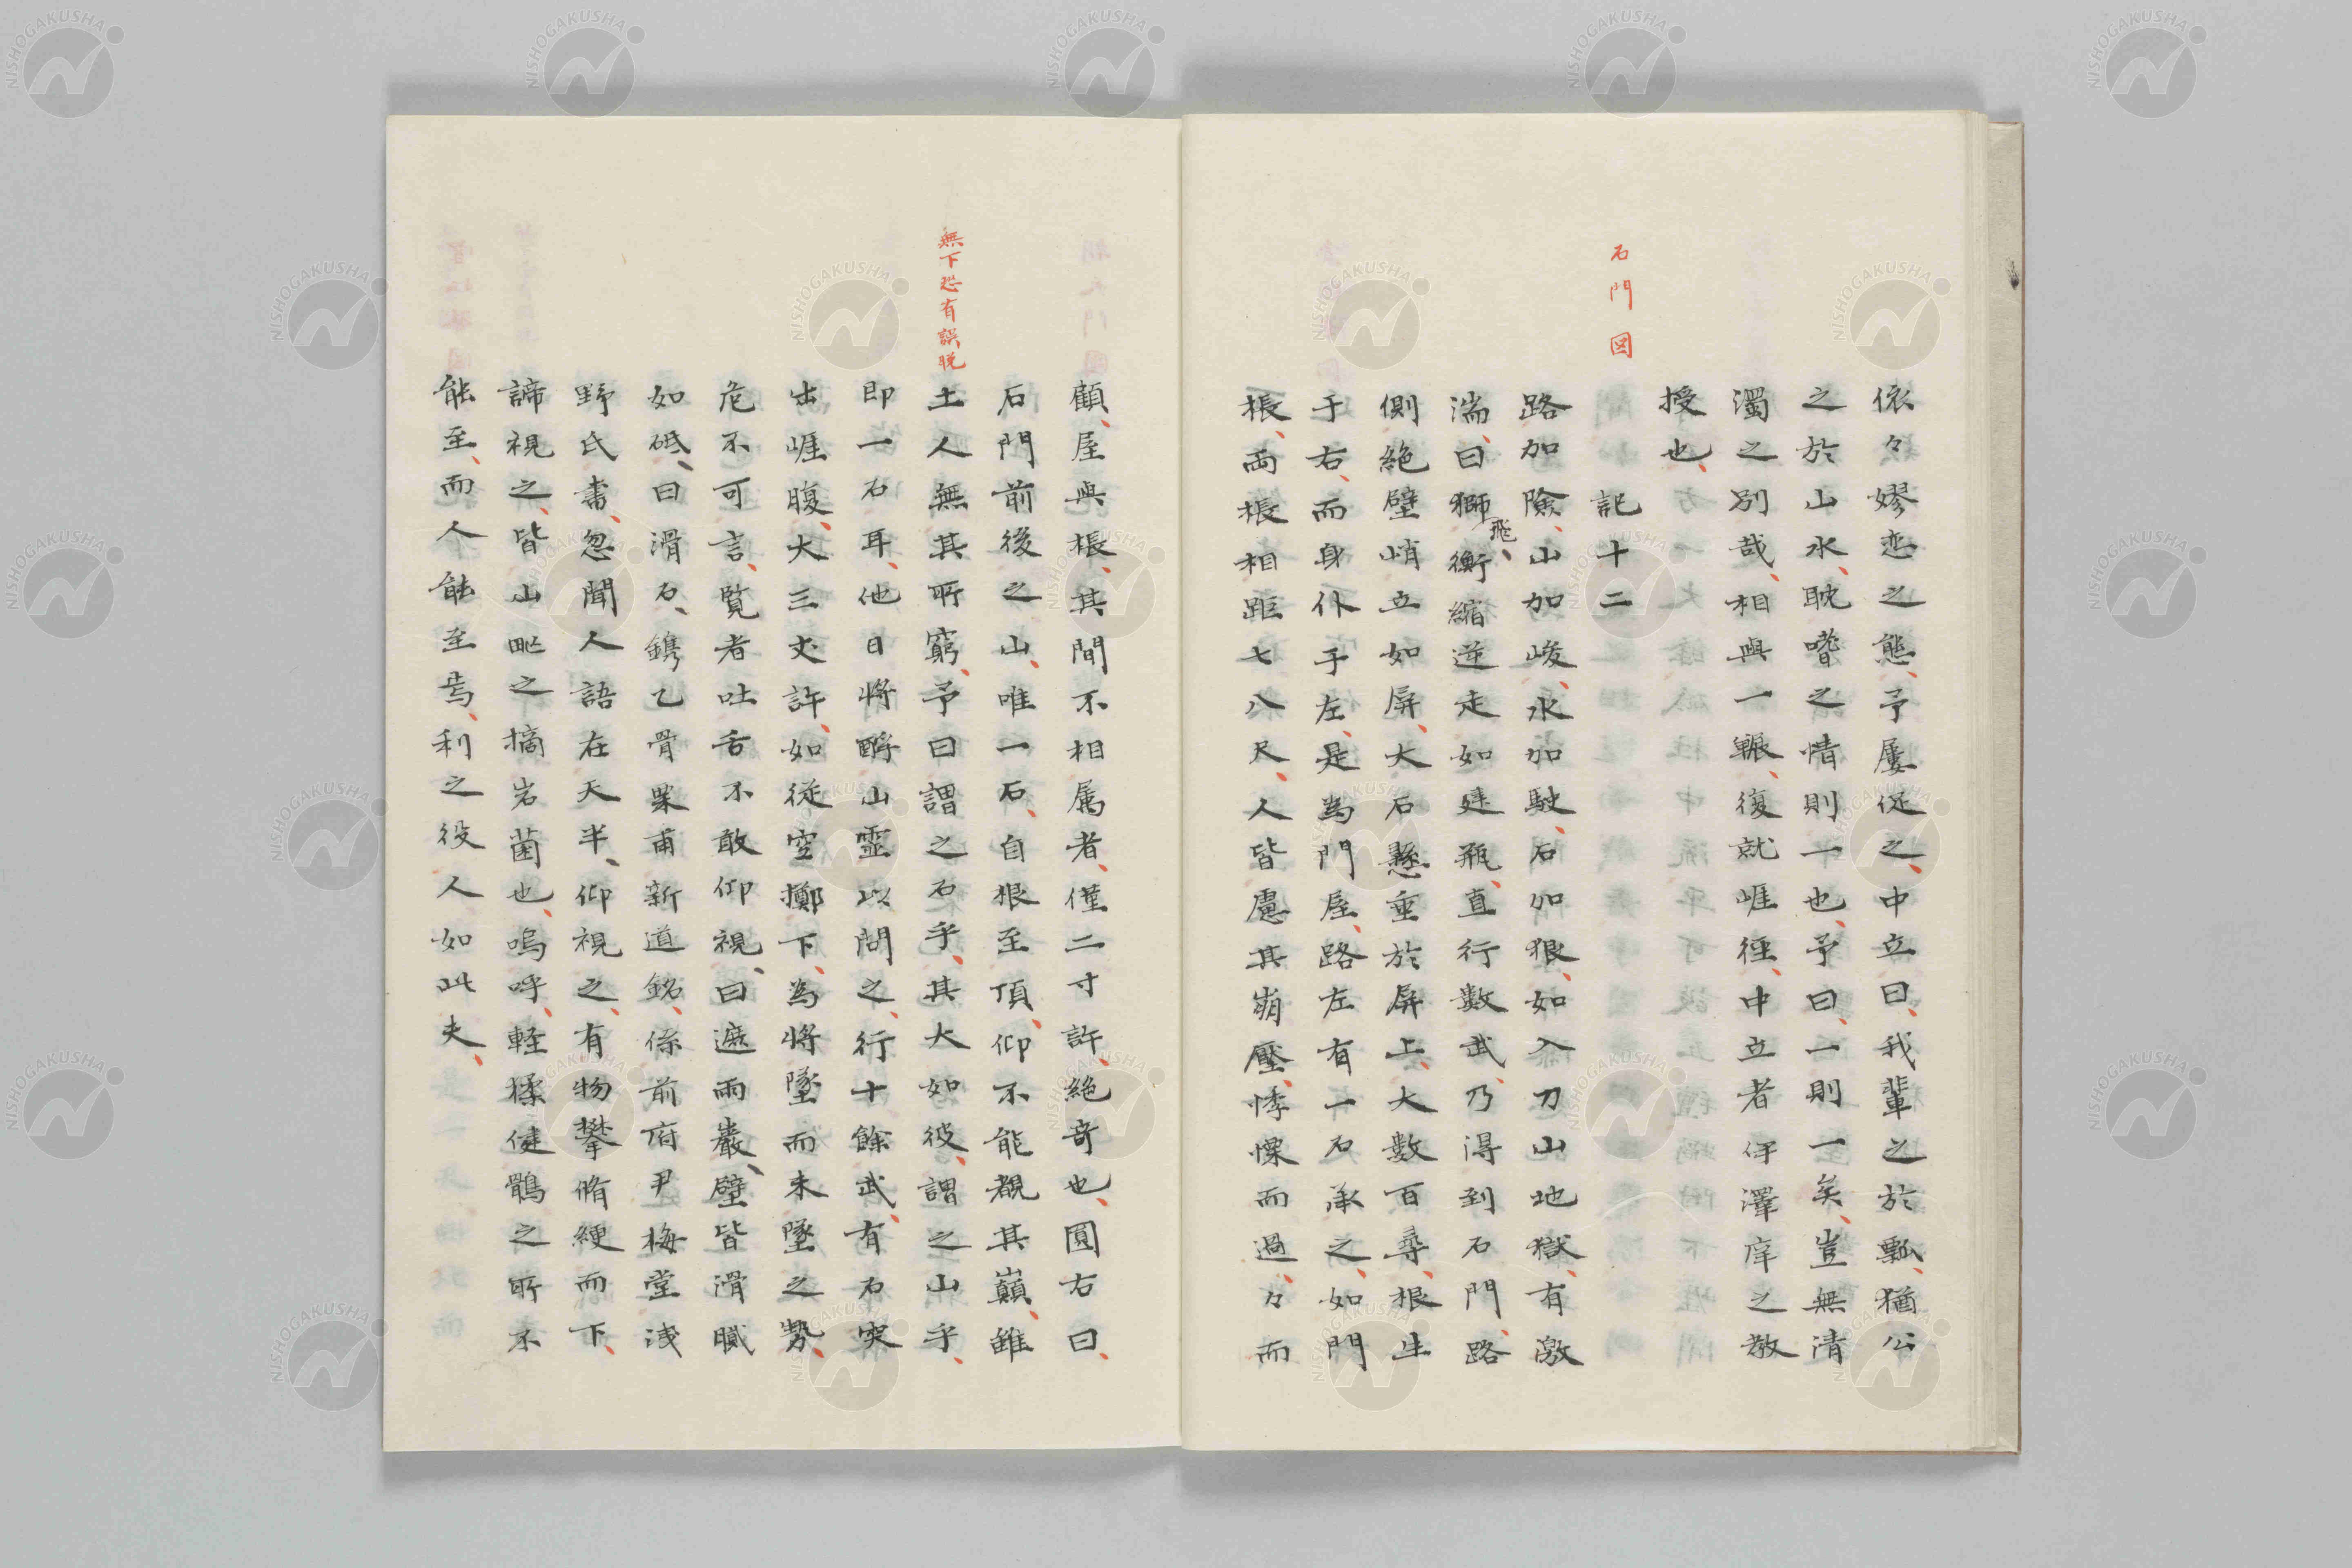 依々嫪恋之態、予屡促之、中立曰、我輩之於瓢、猶公
之於山水、耽嗜之情則一也、予曰、一則一矣、豈無清
濁之別哉、相與一噱、復就崕徑、中立者伊澤庠之教
授也、
石門図
記十二
路加險、山加峻、水加駛、石加狠、如入刀山地獄、有激
湍、曰獅飛、衡縮逆走如建瓶、直行數武、乃得到石門、路
側絶壁峭立如屏、大石懸垂於屏上、大數百尋、根生
于右、而身仆于左、是為門屋、路左有一石承之、如門
棖、両棖相距七八尺、人皆慮其崩壓、悸慄而過、々而
顧、屋與棖、其間不相属者、僅二寸許、絶奇也、圓右曰、
石門前後之山、唯一石、自根至頂、仰不能覩其巓、雖
無下恐有誤脱
土人無其所窮、予曰謂之石乎、其大如彼、謂之山乎、
即一石耳、他日将酹山靈以問之、行十餘武、有石突
出崕腹、大三丈許、如従空擲下、為将墜而未墜之勢、
危不可言、覧者吐舌不敢仰視、曰遮雨巖、壁皆滑膩
如砥、曰滑石、鐫乙骨杲甫新道銘、係前府尹梅堂浅
野氏書、忽聞人語在天半、仰視之、有物攀脩綆而下、
諦視之、皆山甿之摘岩菌也、嗚呼、軽猱健鶻之所不
能至、而人能至焉、利之役人如此夫、